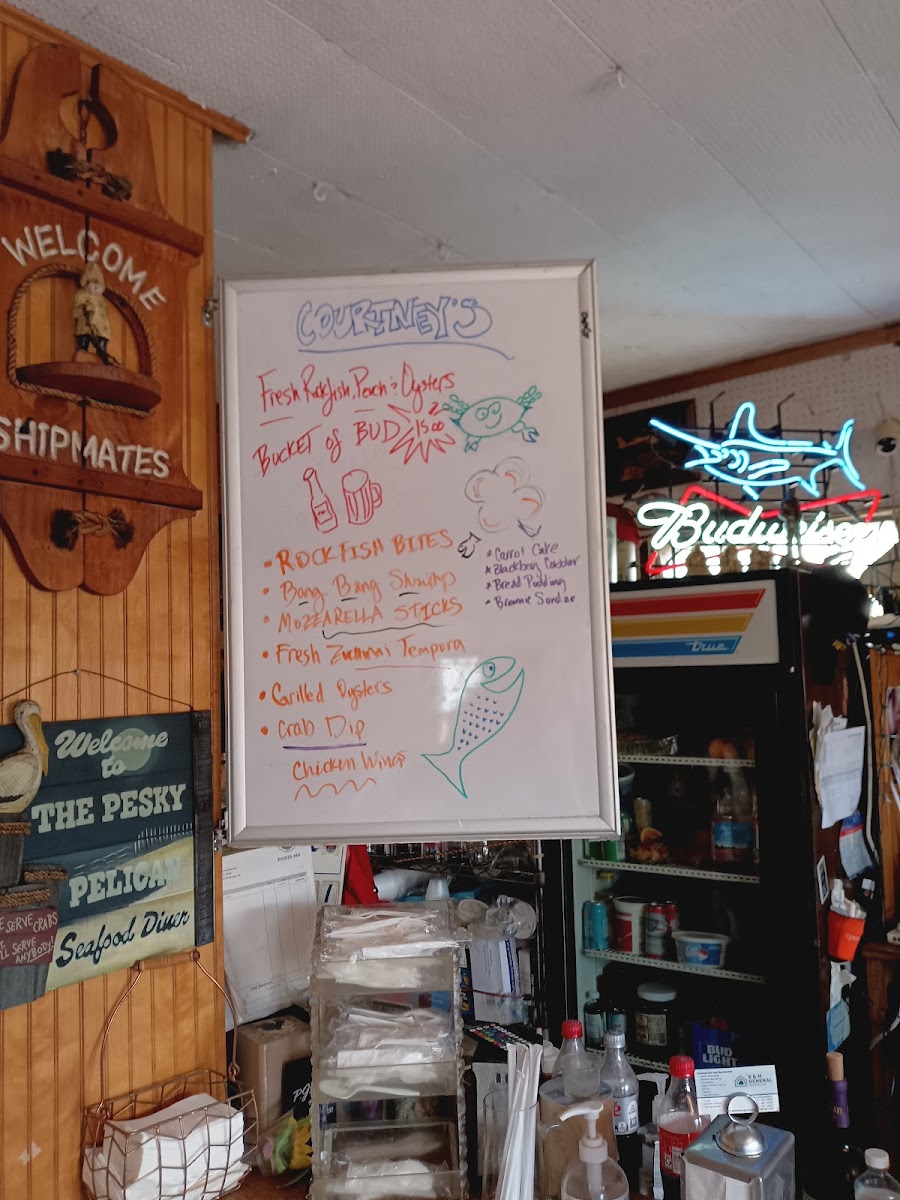 WELCOME
SHIPMATES
Welcome
to
THE PESKY
PELICAN
Seafood Diner
WE SERVE CRABS
WE'LL SERVE
ANYBODY!
COURTNEY'S
Fresh Rockfish, Perch & Oysters
BUCKET of BUD 15.00
• ROCKFISH BITES
• Bang Bang Shrimp
• MOZZARELLA STICKS
• Fresh Zucchini Tempora
• Grilled Oysters
• Crab Dip
Chicken Wings
* Carrot Cake
* Blackberry Cobbler
* Bread Pudding
* Brownie Sundae
Budweiser
true
BUD
LIGHT
K & H
GENERAL